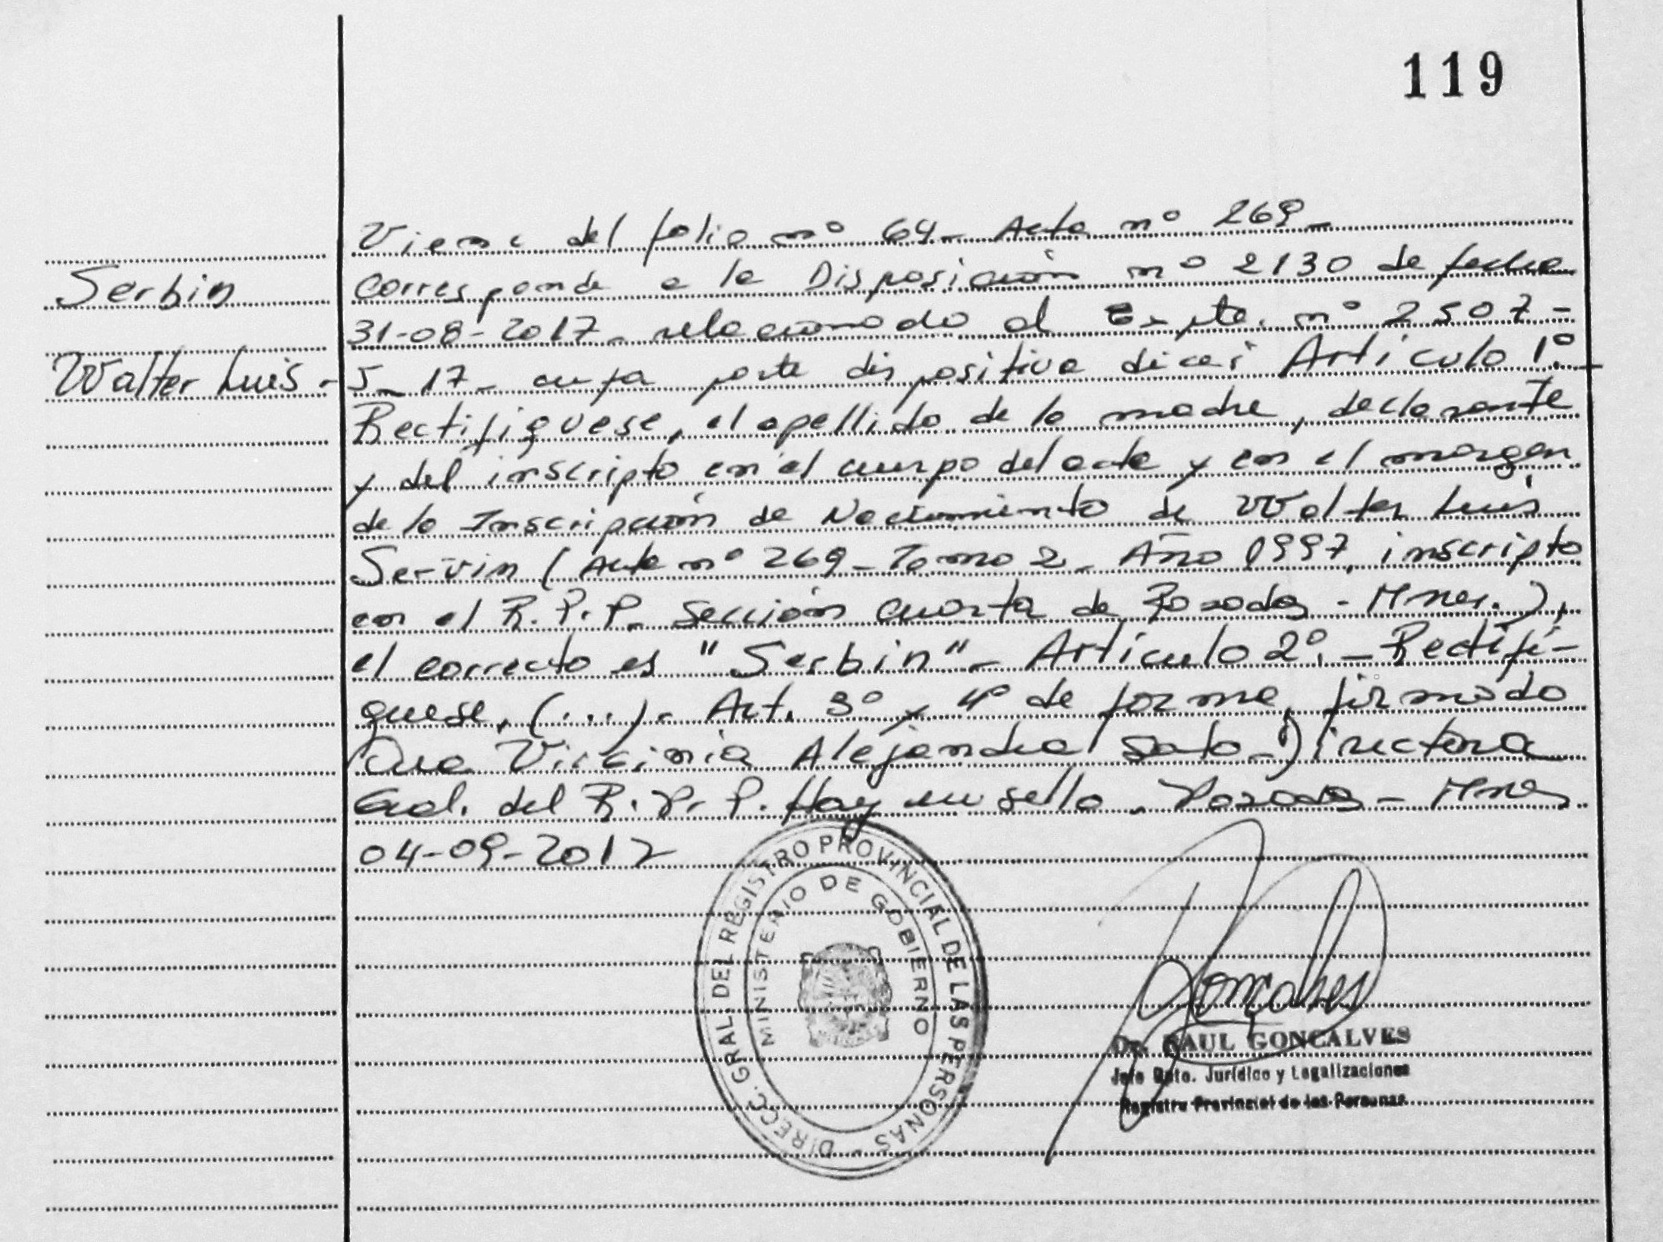 119
Viene del folio nº 64_ Acta nº 269_
Serbin
corresponde a la Disposición nº 2130 de fecha
31-08-2017_ relacionado al Expte. nº 2507-
Walter Luis.-
S_17_ cuya parte dispositiva dice: Artículo 1º._
Rectifiquese, el apellido de la madre, declarante
y del inscripto en el cuerpo del acta y en el margen
de la Inscripción de Nacimiento de Walter Luis
Servin (Acta nº 269_ Tomo 2_ Año 1997, inscripto
en el R.P.P. Sección cuarta de Posadas - Mnes.),
el correcto es "Serbin"_ Artículo 2º._ Rectifi-
quese, (...)_ Art. 3º y 4º de forma, firmado
Dra Virginia Alejandra Directora
Gral. del R.P.P. Hay un sello. Posadas - Mnes
04-09-2017
DIRECC. GRAL. DEL REGISTRO PROVINCIAL DE LAS PERSONAS -
MINISTERIO DE GOBIERNO
Gonçalves
Dr. RAUL GONCALVES
Jefe Dpto. Jurídico y Legalizaciones
Registro Provincial de las Personas